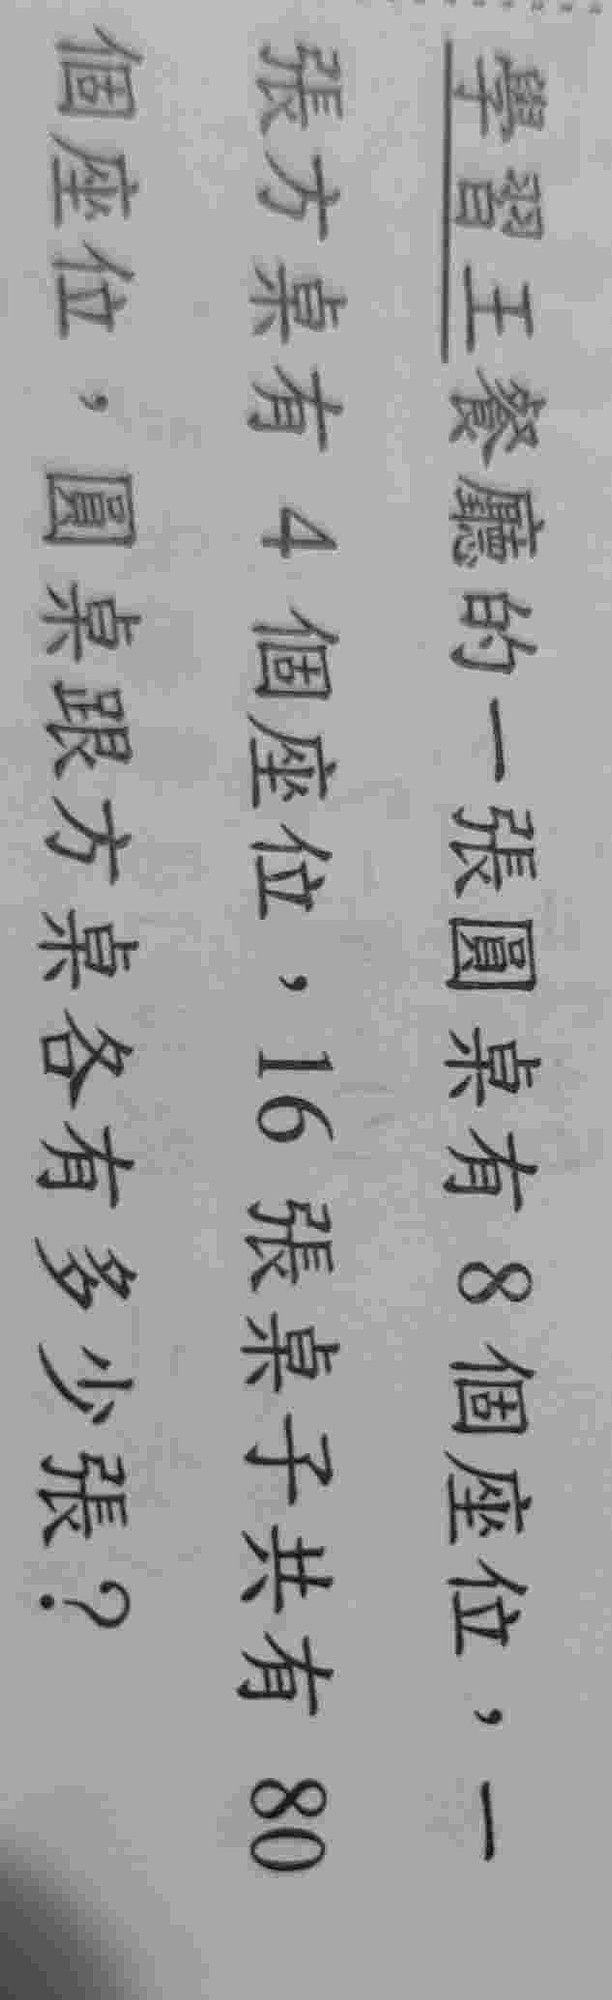 學習王餐廳的一張圓桌有 8 個座位，一
張方桌有 4 個座位，16 張桌子共有 80
個座位，圓桌跟方桌各有多少張？